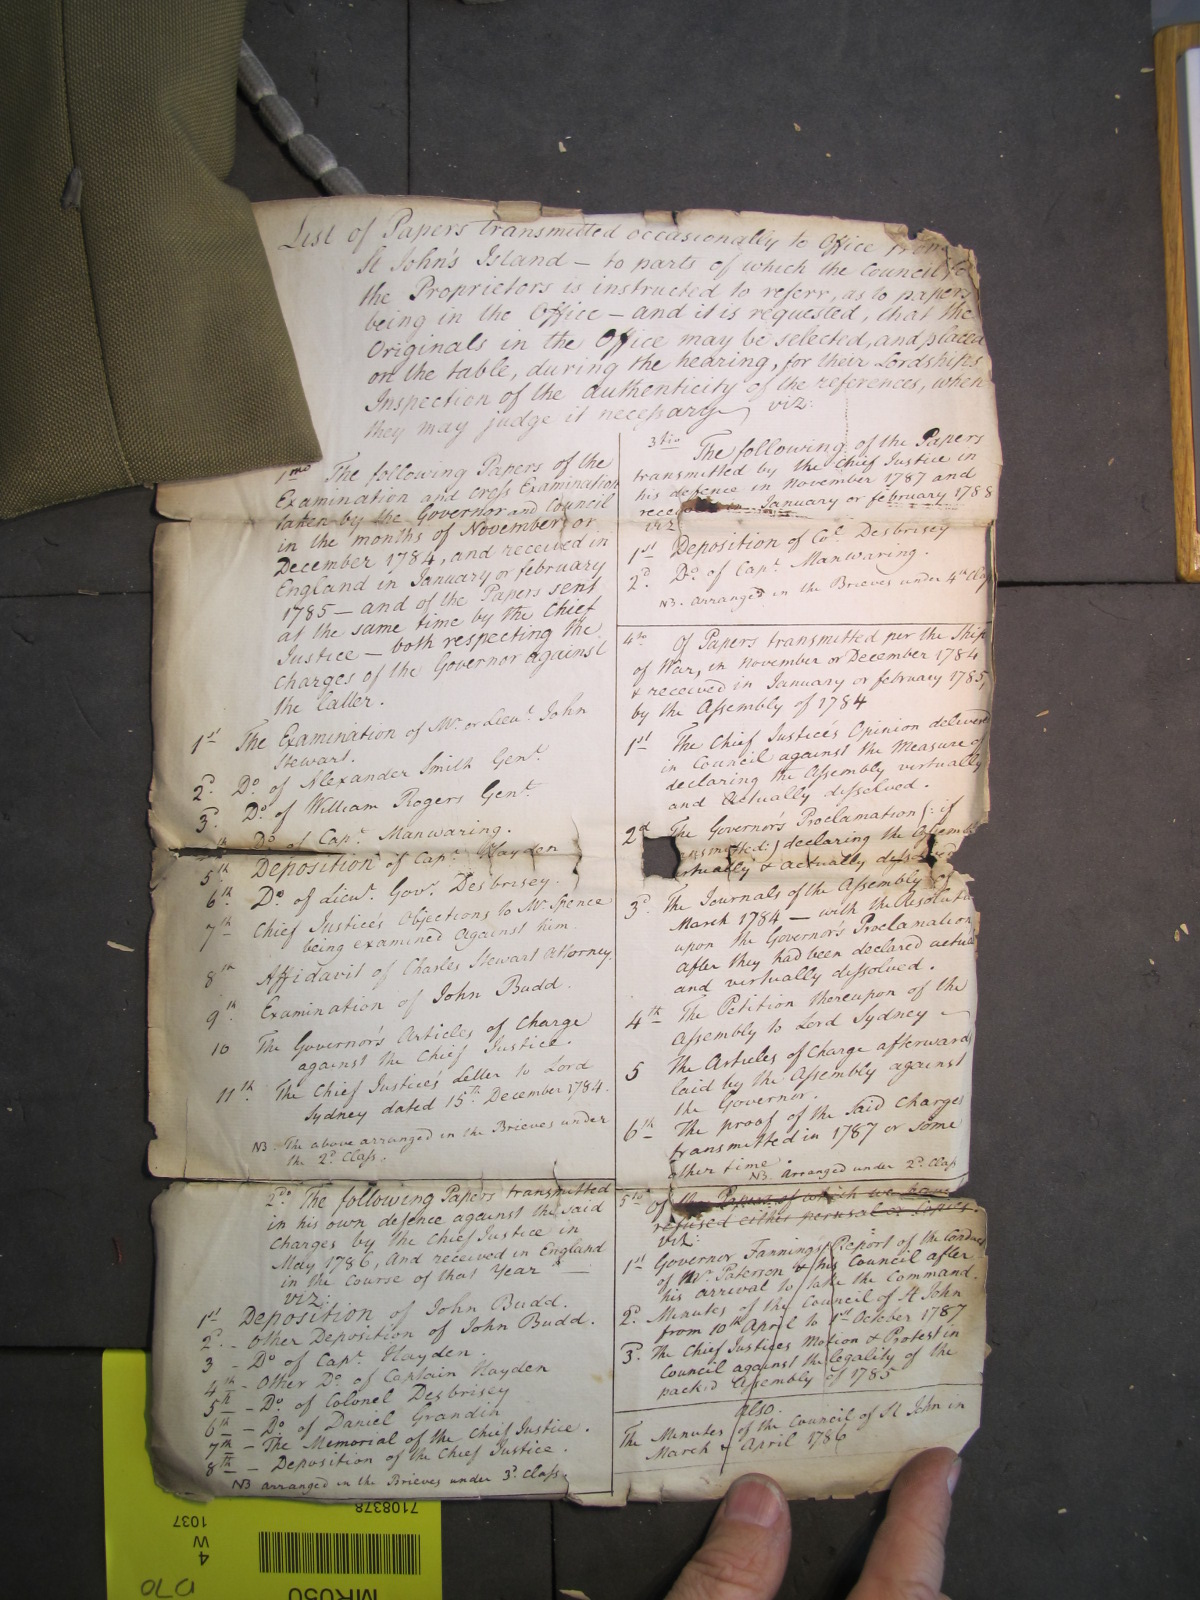 List of Papers transmitted occasionally to Office from
St John's Island – to parts of which the Council for
the Proprietors is instructed to referr, as to papers
being in the Office – and it is requested, that the
Originals in the Office may be selected, and placed
on the table, during the hearing, for their Lordships
Inspection of the authenticity of the references, when
they may judge it necessary viz:
1mo The following Papers of the
Examination and cross Examination
taken by the Governor and Council
in the months of November or
December 1784, and received in
England in January or february
1785 – and of the Papers sent
at the same time by the Chief
Justice – both respecting the
charges of the Governor against
the latter.
1st The Examination of Mr. or Lieut. John
Stewart.
2d. Do. of Alexander Smith Gent.
3d. Do. of William Rogers Gent.
th Do. of Capt. Manwaring.
5th Deposition of Capt. Hayden
6th Do. of Lieut. Govr. Desbrisey.
7th Chief Justice's Objections to Mr. Spence
being examined against him.
8th Affidavit of Charles Stewart Attorney.
9th. Examination of John Budd.
10 The Governor's Articles of Charge
against the Chief Justice.
11th. The Chief Justice's Letter to Lord
Sydney dated 15th December 1784.
NB The above arranged in the Brieves under
the 2d. Class.
2do. The following Papers transmitted
in his own defence against the said
Charges by the Chief Justice in
May 1786, and received in England
in the course of that Year –
viz:
1st Deposition of John Budd.
2d. - Other Deposition of John Budd.
3 - Do. of Capt. Hayden.
4th - Other Do. of Captain Hayden
5th - Do. of Colonel Desbrisey
6th - Do. of Daniel Grandin
7th - The Memorial of the Chief Justice.
8th - Deposition of the Chief Justice.
NB arranged in the Brieves under 3d. Class.
3tio The following of the Papers
transmitted by the Chief Justice in
his defence in November 1787 and
received in January or february 1788
viz
1st Deposition of Col. Desbrisey
2d. Do. of Capt. Manwaring.
NB. arranged in the Brieves under 4th Class
4to Of Papers transmitted per the Ship
of War, in November or December 1784
& received in January or february 1785,
by the Assembly of 1784
1st The Chief Justice's Opinion delivered
in Council against the Measure of
declaring the Assembly virtually
and Actually dissolved.
2d The Governor's Proclamation (: if
transmitted:) declaring the Assembly
virtually & actually dissolved
3d. The Journals of the Assembly of
March 1784 – with the Resolution
upon the Governor's Proclamation
after they had been declared actual
and virtually dissolved.
4th The Petition thereupon of the
Assembly to Lord Sydney –
5 The Articles of Charge afterwards
laid by the Assembly against
the Governor.
6th The proof of the said Charges
transmitted in 1787 or some
other time
NB. arranged under 2d. Class
5to Of the Papers of which we have
refused either perusal or Copies.
viz:
1st Governor Fanning's Report of the Conduct
of Mr. Paterson & his Council after
his arrival to take the Command.
2d. Minutes of the Council of St John
from 10th April to 1st October 1787
3d. The Chief Justices Motion & Protest in
Council against the legality of the
packed Assembly of 1785
also.
The Minutes of the Council of St John in
March & April 1786
7108378
1037
W
4
MR050
D70